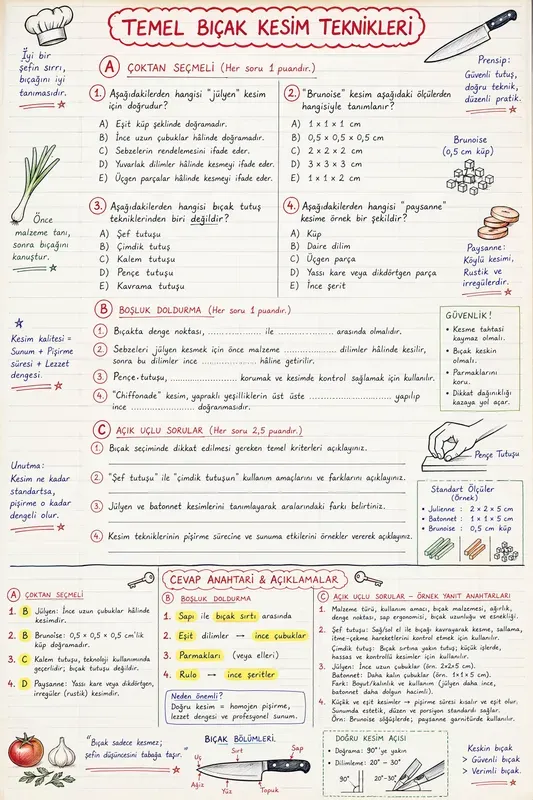 TEMEL BIÇAK KESİM TEKNİKLERİ
İyi bir
şefin sırrı,
bıçağını iyi
tanımasıdır.
Prensip:
Güvenli tutuş,
doğru teknik,
düzenli pratik.
A ÇOKTAN SEÇMELİ (Her soru 1 puandır.)
1. Aşağıdakilerden hangisi "jülyen" kesim
için doğrudur?
A) Eşit küp şeklinde doğramadır.
B) İnce uzun çubuklar hâlinde doğramadır.
C) Sebzelerin rendelemesini ifade eder.
D) Yuvarlak dilimler hâlinde kesmeyi ifade eder.
E) Üçgen parçalar hâlinde kesmeyi ifade eder.
2. "Brunoise" kesim aşağıdaki ölçülerden
hangisiyle tanımlanır?
A) 1 x 1 x 1 cm
B) 0,5 x 0,5 x 0,5 cm
C) 2 x 2 x 2 cm
D) 3 x 3 x 3 cm
E) 1 x 1 x 2 cm
Brunoise
(0,5 cm küp)
Önce
malzeme tanı,
sonra bıçağını
kanuştur.
3. Aşağıdakilerden hangisi bıçak tutuş
tekniklerinden biri değildir?
A) Şef tutuşu
B) Çimdik tutuş
C) Kalem tutuşu
D) Pençe tutuşu
E) Kavrama tutuşu
4. Aşağıdakilerden hangisi "paysanne"
kesime örnek bir şekildir?
A) Küp
B) Daire dilim
C) Üçgen parça
D) Yassı kare veya dikdörtgen parça
E) İnce şerit
Paysanne:
Köylü kesimi,
Rustik ve
irregülerdir.
B BOŞLUK DOLDURMA (Her soru 1 puandır.)
1. Bıçakta denge noktası, .................... ile .................... arasında olmalıdır.
2. Sebzeleri jülyen kesmek için önce malzeme .................... dilimler hâlinde kesilir,
sonra bu dilimler ince .................... hâline getirilir.
3. Pençe-tutuşu, .................... korumak ve kesimde kontrol sağlamak için kullanılır.
4. "Chiffonade" kesim, yapraklı yeşilliklerin üst üste .................... yapılıp
ince .................... doğranmasıdır.
Kesim kalitesi =
Sunum + Pişirme
süresi + Lezzet
dengesi.
GÜVENLİK!
• Kesme tahtası
kaymaz olmalı.
• Bıçak keskin
olmalı.
• Parmaklarını
koru.
• Dikkat dağınıklığı
kazaya yol açar.
C AÇIK UÇLU SORULAR (Her soru 2,5 puandır.)
1. Bıçak seçiminde dikkat edilmesi gereken temel kriterleri açıklayınız.
2. "Şef tutuşu" ile "çimdik tutuşun" kullanım amaçlarını ve farklarını açıklayınız.
3. Jülyen ve batonnet kesimlerini tanımlayarak aralarındaki farkı belirtiniz.
4. Kesim tekniklerinin pişirme sürecine ve sunuma etkilerini örnekler vererek açıklayınız.
Unutma:
Kesim ne kadar
standartsa,
pişirme o kadar
dengeli olur.
Pençe Tutuşu
Standart Ölçüler
(Örnek)
• Julienne : 2 x 2 x 5 cm
• Batonnet : 1 x 1 x 5 cm
• Brunoise : 0,5 cm küp
CEVAP ANAHTARI & AÇIKLAMALAR
A ÇOKTAN SEÇMELİ
1. B Jülyen: İnce uzun çubuklar hâlinde
kesimdir.
2. B Brunoise: 0,5 x 0,5 x 0,5 cm'lik
küp doğramadır.
3. C Kalem tutuşu, teknoloji kullanımında
geçerlidir; bıçak tutuşu değildir.
4. D Paysanne: Yassı kare veya dikdörtgen,
irregüler (rustik) kesimdir.
B BOŞLUK DOLDURMA
1. Sapı ile bıçak sırtı arasında
2. Eşit dilimler → ince çubuklar
3. Parmakları (veya elleri)
4. Rulo → ince şeritler
Neden önemli?
Doğru kesim = homojen pişirme,
lezzet dengesi ve profesyonel sunum.
C AÇIK UÇLU SORULAR – ÖRNEK YANIT ANAHTARLARI
1. Malzeme türü, kullanım amacı, bıçak malzemesi, ağırlık,
denge noktası, sap ergonomisi, bıçak uzunluğu ve esnekliği.
2. Şef tutuşu: Sağ/sol el ile bıçağı kavrayarak kesme, sallama,
itme-çekme hareketlerini kontrol etmek için kullanılır.
Çimdik tutuşu: Bıçak sırtına yakın tutuş; küçük işlerde,
hassas ve kontrollü kesimler için kullanılır.
3. Jülyen: İnce uzun çubuklar (örn. 2x2x5 cm).
Batonnet: Daha kalın çubuklar (örn. 1x1x5 cm).
Fark: Boyut/kalınlık ve kullanım (jülyen daha ince,
batonnet daha dolgun hacimli).
4. Küçük ve eşit kesimler → pişirme süresi kısalır ve eşit olur.
Sunumda estetik, düzen ve porsiyon standardı sağlar.
Örn: Brunoise söğüşlerde; paysanne garnitürde kullanılır.
"Bıçak sadece kesmez;
şefin düşüncesini tabağa taşır."
BIÇAK BÖLÜMLERİ
Uç
Sırt
Sap
Ağız
Yüz
Topuk
DOĞRU KESİM AÇISI
• Doğrama: 90°'ye yakın
• Dilimleme: 20° – 30°
90°
20°-30°
Keskin bıçak
> Güvenli bıçak
> Verimli bıçak.